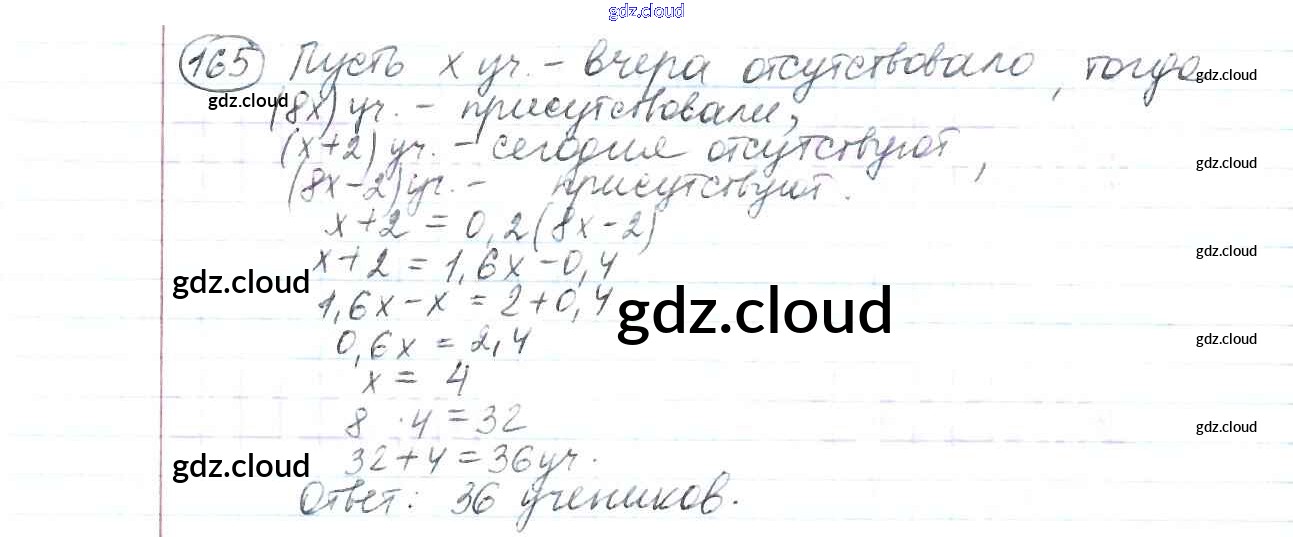 gdz.cloud
165 Пусть x уч. - вчера отсутствовало, тогда
gdz.cloud
gdz.cloud
(8x) уч. - присутствовали,
(x+2) уч. - сегодня отсутствуют,
gdz.cloud
(8x-2) уч. - присутствуют.
x+2 = 0,2(8x-2)
gdz.cloud
x+2 = 1,6x-0,4
gdz.cloud
1,6x-x = 2+0,4
gdz.cloud
0,6x = 2,4
gdz.cloud
x = 4
8 · 4 = 32
gdz.cloud
32+4=36уч.
gdz.cloud
Ответ: 36 учеников.